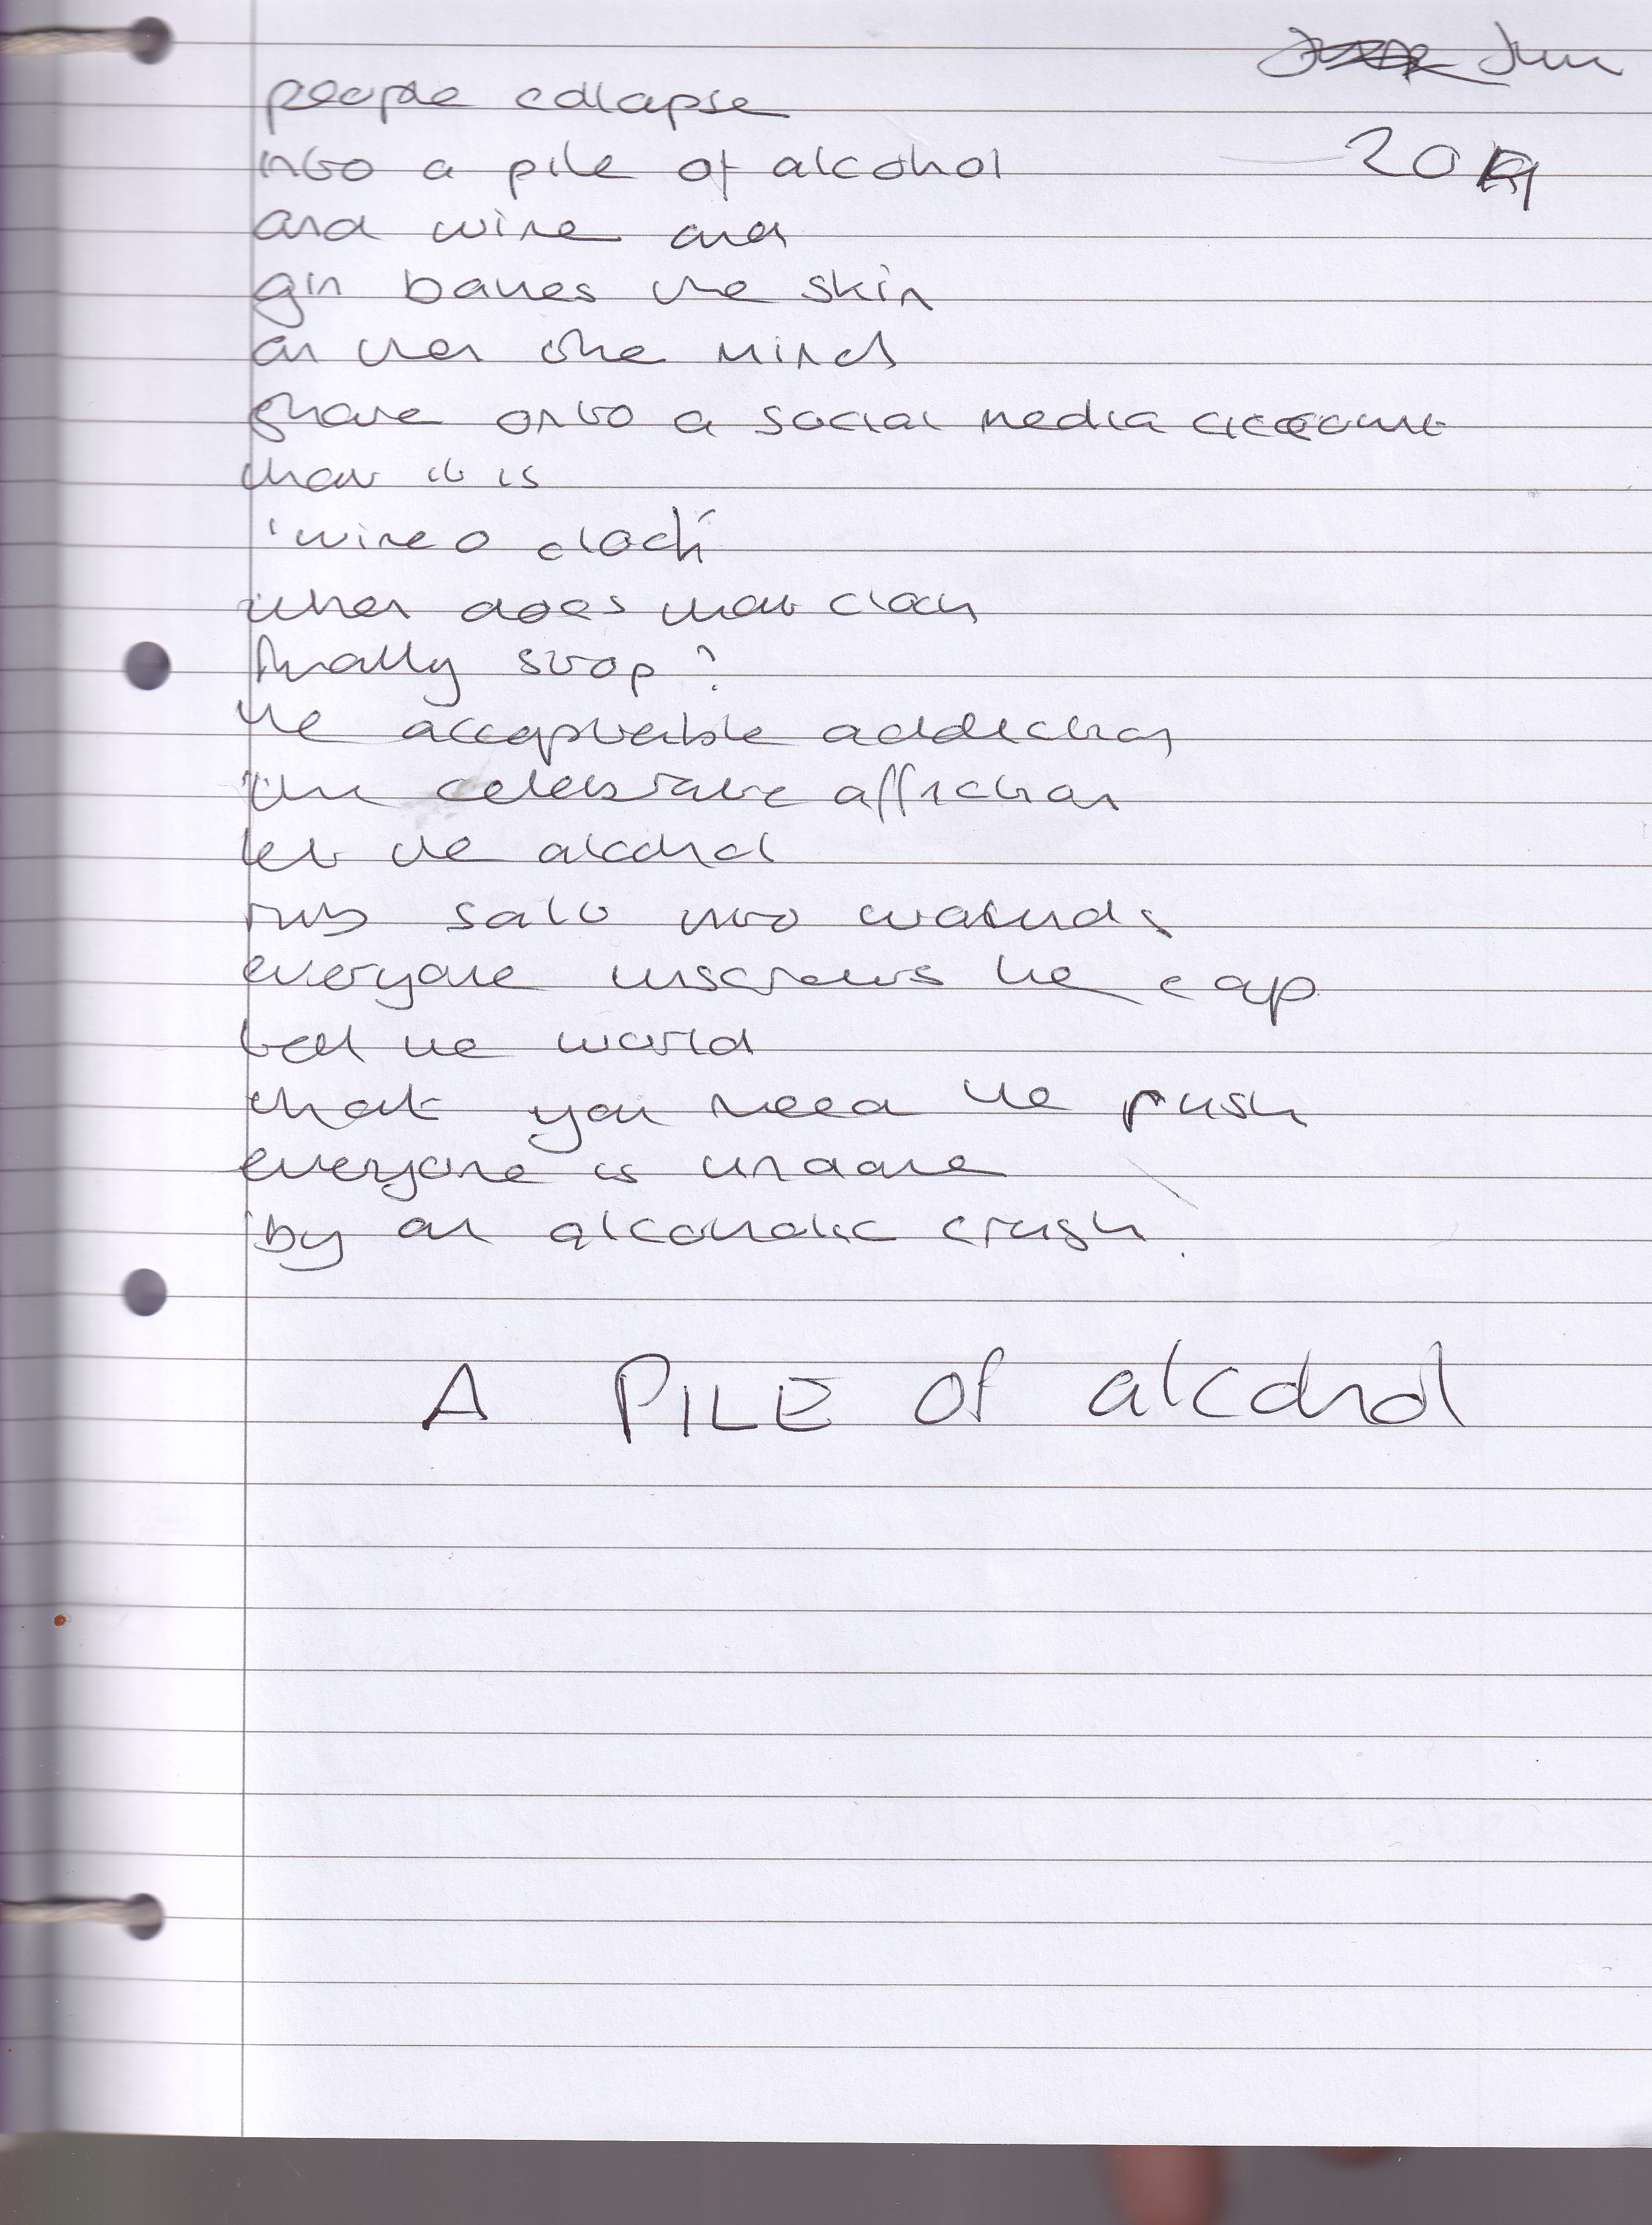 June
2019
people collapse
into a pile of alcohol
and wine and
gin bathes the skin
an then the mind
share onto a social media account
that it is
'wine o clock'
when does that clock
finally stop?
the acceptable addiction
the celebrate affliction
let the alcohol
rub salt into wounds
everyone unscrews the cap
tell the world
that you need the push
everyone is undone
by an alcoholic crush.
A PILE of alcohol